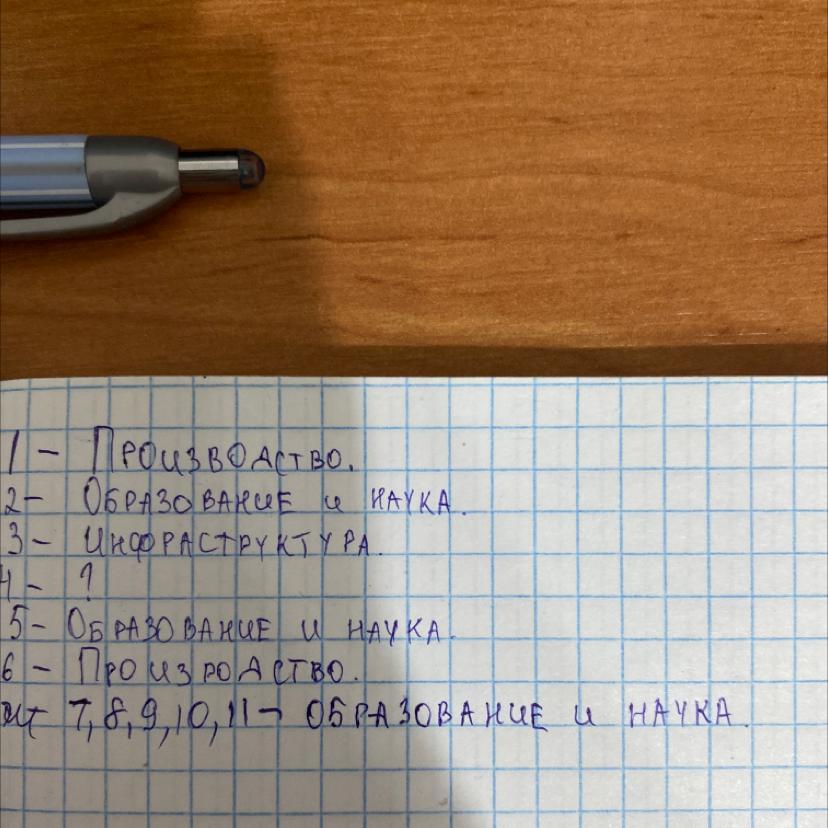 1 - Производство.
2 - Образование и наука.
3 - Инфраструктура.
4 - ?
5 - Образование и наука.
6 - Произродство.
7, 8, 9, 10, 11 - образование и наука.